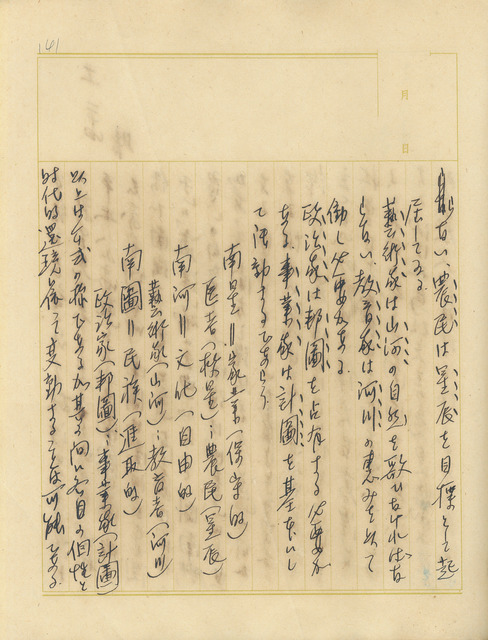 141
月 日
ない、農民は星辰を目標として起
居してゐる。
藝術家は山河の自然を歌はなければな
らない、教育家は河川の恵みを以て
働く必要がある
政治家は邦圖を占有する必要が
ある事業家は計圖を基本にし
て活動するであらう
南星=家業(保守的)
医者(救星):農民(星辰)
南河=文化(自由的)
藝術家(山河):教育者(河川)
南圖=民族(進取的)
政治家(邦圖):事業家(計圖)
以上は公式の様であるが其の間に各自の個性と
時代的環境に依って変動することは可能である